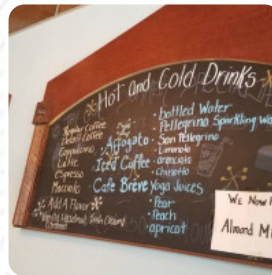 Hot and Cold Drinks
Regular Coffee
Decaff Coffee
Cappuccino
Latte
Espresso
Macciato
Add A Flavor
Vanilla, Hazelnut, Irish Cream,
Caramel
Affogato
Iced Coffee
Cafe Breve
bottled Water
Pellegrino Sparkling Wa
San Pellegrino
Limonata
aranciata
Chinotto
Yoga Juices
Pear
Peach
apricot
WE NOW H
Almond Mi